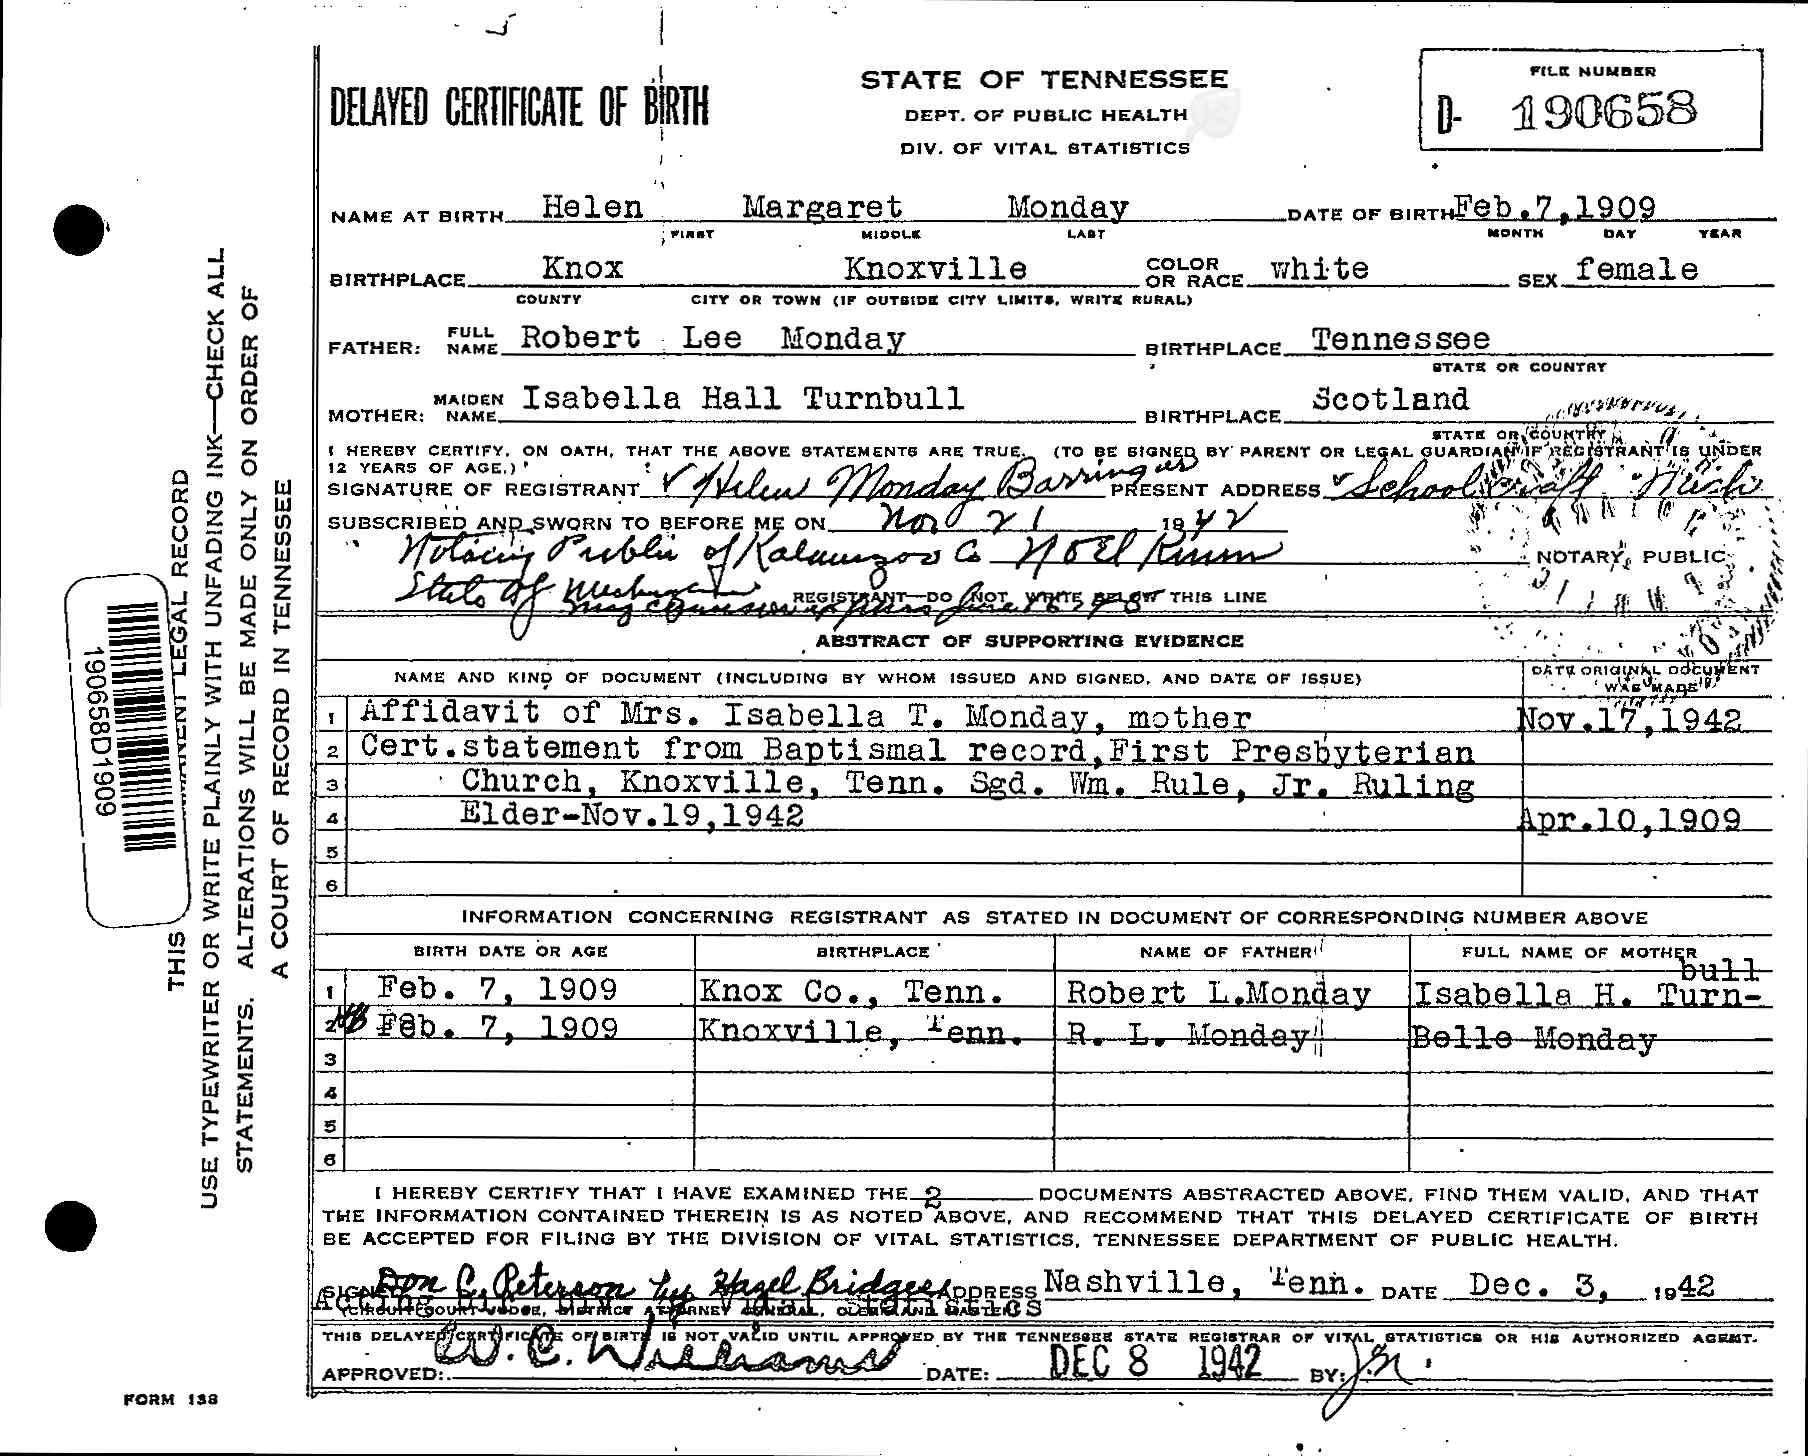 DELAYED CERTIFICATE OF BIRTH
STATE OF TENNESSEE
DEPT. OF PUBLIC HEALTH
DIV. OF VITAL STATISTICS
FILE NUMBER
D- 190658
NAME AT BIRTH Helen Margaret Monday DATE OF BIRTH Feb.7,1909
FIRST MIDDLE LAST MONTH DAY YEAR
BIRTHPLACE Knox Knoxville COLOR OR RACE white SEX female
COUNTY CITY OR TOWN (IF OUTSIDE CITY LIMITS, WRITE RURAL)
FATHER: FULL NAME Robert Lee Monday BIRTHPLACE Tennessee
STATE OR COUNTRY
MOTHER: MAIDEN NAME Isabella Hall Turnbull BIRTHPLACE Scotland
STATE OR COUNTRY
I HEREBY CERTIFY, ON OATH, THAT THE ABOVE STATEMENTS ARE TRUE. (TO BE SIGNED BY PARENT OR LEGAL GUARDIAN IF REGISTRANT IS UNDER
12 YEARS OF AGE.)
SIGNATURE OF REGISTRANT Helen Monday Barringer PRESENT ADDRESS Schoolcraft Mich
SUBSCRIBED AND SWORN TO BEFORE ME ON Nov 21 1942
Notary Public of Kalamazoo Co Noel NOTARY PUBLIC
State of Michigan
my commission expires June
REGISTRANT—DO NOT WRITE BELOW THIS LINE
ABSTRACT OF SUPPORTING EVIDENCE
NAME AND KIND OF DOCUMENT (INCLUDING BY WHOM ISSUED AND SIGNED, AND DATE OF ISSUE) DATE ORIGINAL DOCUMENT
WAS MADE
1 Affidavit of Mrs. Isabella T. Monday, mother Nov.17,1942
2 Cert.statement from Baptismal record,First Presbyterian
3 Church, Knoxville, Tenn. Sgd. Wm. Rule, Jr. Ruling
4 Elder-Nov.19,1942 Apr.10,1909
5
6
INFORMATION CONCERNING REGISTRANT AS STATED IN DOCUMENT OF CORRESPONDING NUMBER ABOVE
BIRTH DATE OR AGE BIRTHPLACE NAME OF FATHER FULL NAME OF MOTHER
bull
1 Feb. 7, 1909 Knox Co., Tenn. Robert L.Monday Isabella H. Turn-
2 Feb. 7, 1909 Knoxville, Tenn. R. L. Monday Belle Monday
3
4
5
6
I HEREBY CERTIFY THAT I HAVE EXAMINED THE 2 DOCUMENTS ABSTRACTED ABOVE, FIND THEM VALID, AND THAT
THE INFORMATION CONTAINED THEREIN IS AS NOTED ABOVE, AND RECOMMEND THAT THIS DELAYED CERTIFICATE OF BIRTH
BE ACCEPTED FOR FILING BY THE DIVISION OF VITAL STATISTICS, TENNESSEE DEPARTMENT OF PUBLIC HEALTH.
SIGNED Don C. Peterson by Hazel Bridges ADDRESS Nashville, Tenn. DATE Dec. 3, 1942
Acting Vital Statistics
(CIRCUIT COURT JUDGE, DISTRICT ATTORNEY GENERAL, CLERK AND MASTER)
THIS DELAYED CERTIFICATE OF BIRTH IS NOT VALID UNTIL APPROVED BY THE TENNESSEE STATE REGISTRAR OF VITAL STATISTICS OR HIS AUTHORIZED AGENT.
APPROVED: W. C. Williams DATE: DEC 8 1942 BY:
FORM 138
THIS PERMANENT LEGAL RECORD
USE TYPEWRITER OR WRITE PLAINLY WITH UNFADING INK—CHECK ALL
STATEMENTS. ALTERATIONS WILL BE MADE ONLY ON ORDER OF
A COURT OF RECORD IN TENNESSEE
190658D1909